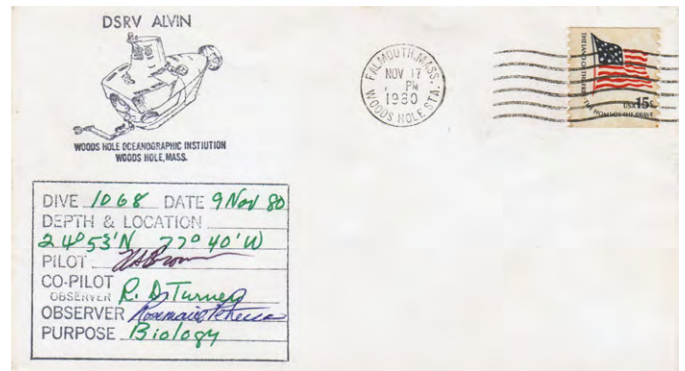 DSRV ALVIN
WOODS HOLE OCEANOGRAPHIC INSTIUTION
WOODS HOLE, MASS.
FALMOUTH, MASS.
NOV 17
PM
1980
WOODS HOLE STA.
THE LAND OF THE FREE · THE HOME OF THE BRAVE
USA 15c
DIVE 1068 DATE 9 Nov 80
DEPTH & LOCATION
24° 53'N 77° 40'W
PILOT
CO-PILOT
OBSERVER R. D. Turner
OBSERVER Rosemarie
PURPOSE Biology